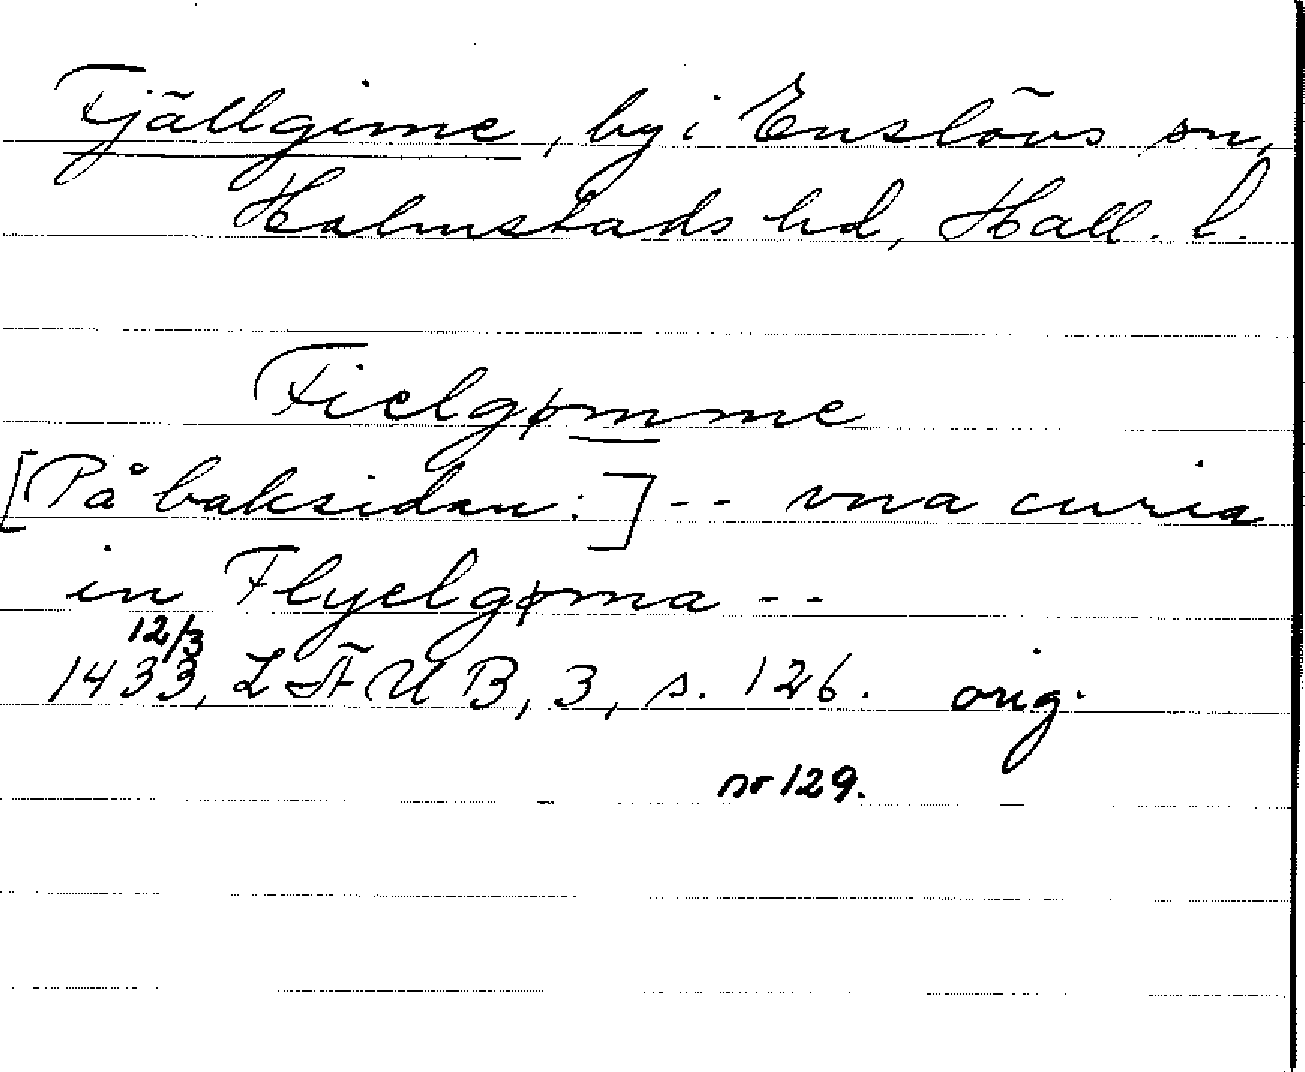 Fjällgime, by i Enslövs sn,
Halmstads hd, Hall. l.
Fielgømme
[På baksidan:] -- vna curia
in Flyelgøma --
12/3
1433, LÄUB, 3, s. 126. orig.
nr 129.